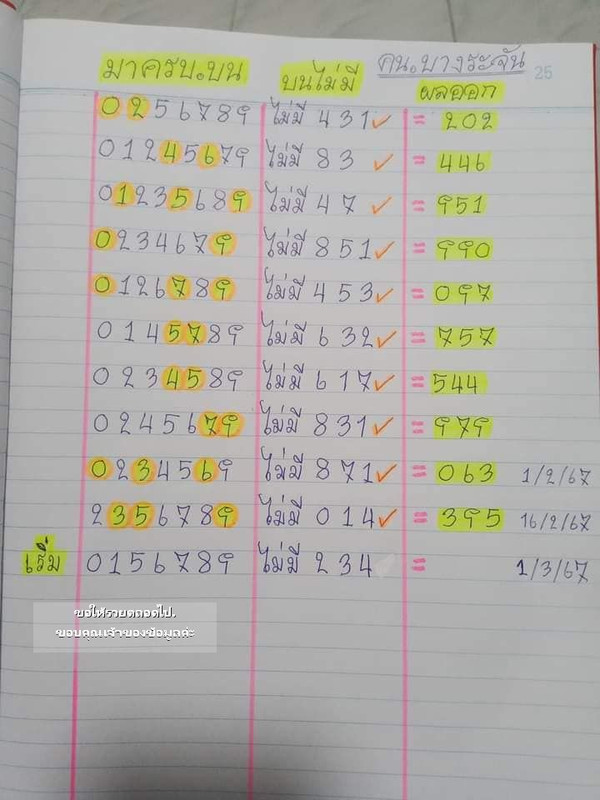 คน.บางระจัน
25
มาครบ.บน บนไม่มี ผลออก
0256789 ไม่มี 431 ✓ = 202
01245679 ไม่มี 83 ✓ = 446
01235689 ไม่มี 47 ✓ = 951
0234679 ไม่มี 851 ✓ = 990
0126789 ไม่มี 453 ✓ = 097
0145789 ไม่มี 632 ✓ = 757
0234589 ไม่มี 617 ✓ = 544
0245679 ไม่มี 831 ✓ = 979
0234569 ไม่มี 871 ✓ = 063 1/2/67
2356789 ไม่มี 014 ✓ = 395 16/2/67
เริ่ม 0156789 ไม่มี 234 = 1/3/67
ขอให้รวยตลอดไป.
ขอบคุณเจ้าของข้อมูลค่ะ